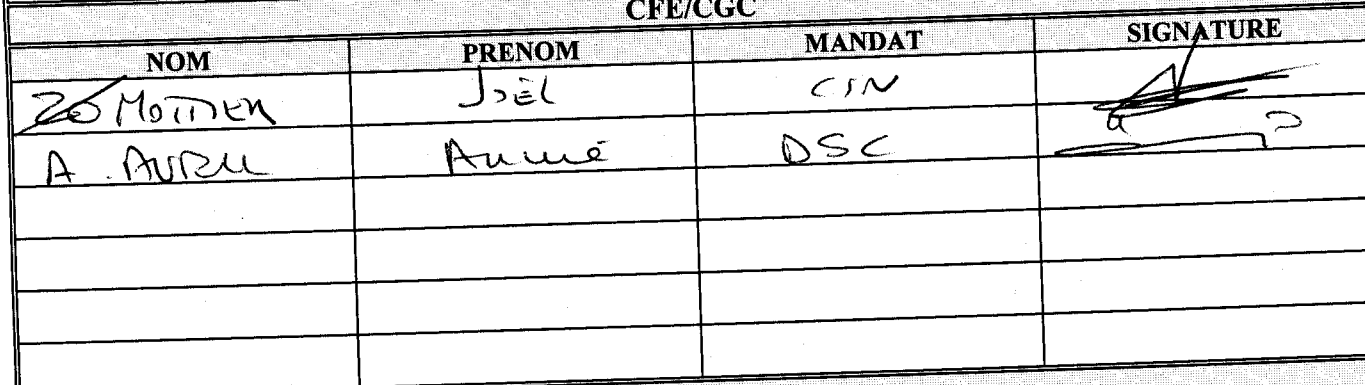 CFE/CGC
NOM PRENOM MANDAT SIGNATURE
MOTTIER Joël CSN
A. DSC